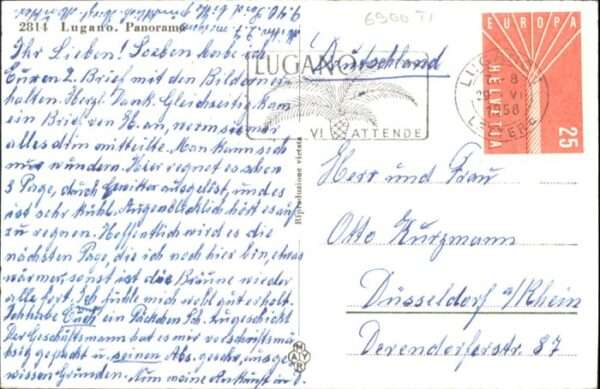 6900 71
2814 Lugano. Panorama
Ihr Lieben! Soeben habe ich
Euren 2. Brief mit den Bildern er-
halten. Herzl. Dank. Gleichzeitig kam
ein Brief von
alles drin mitteilte. Man kann sich
nur wundern. Hier regnet es schon
3 Tage, durch Gewitter ausgelöst, und es
ist sehr kühl. Augenblicklich hört es auf
zu regnen. Hoffentlich wird es die
nächsten Tage, die ich noch hier bin, etwas
wärmer, sonst ist die Bräune wieder
alle fort. Ich fühle mich wohl gut erholt.
Ich habe Euch ein Päckchen Sch. zugeschickt
Der Geschäftsmann hat es mir vorschriftsmä-
ssig gepackt u. seinen Abs. geschr., aus ge-
wissen Gründen. Nun meine Ankunft in
Riproduzione vietata
MAYR
LUGANO
VI ATTENDE
LUGANO
29. VI
1958
LETTERE
EUROPA
HELVETIA
25
Deutschland
Herr und Frau
Otto Kurzmann
Düsseldorf a/Rhein
Derendorferstr. 87